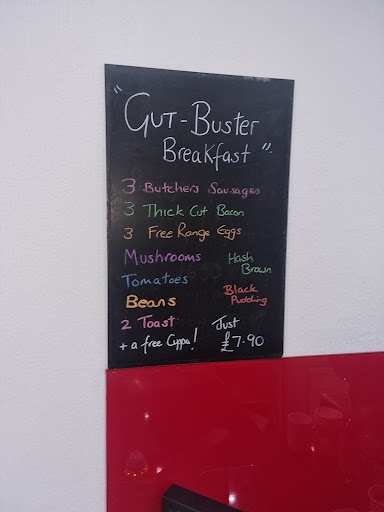 "GUT-BUSTER
BREAKFAST".
3 Butchers Sausages
3 Thick Cut Bacon
3 Free Range Eggs
Mushrooms
Hash
Brown
Tomatoes
Black
Pudding
Beans
2 Toast
Just
+ a free Cuppa!
£7.90